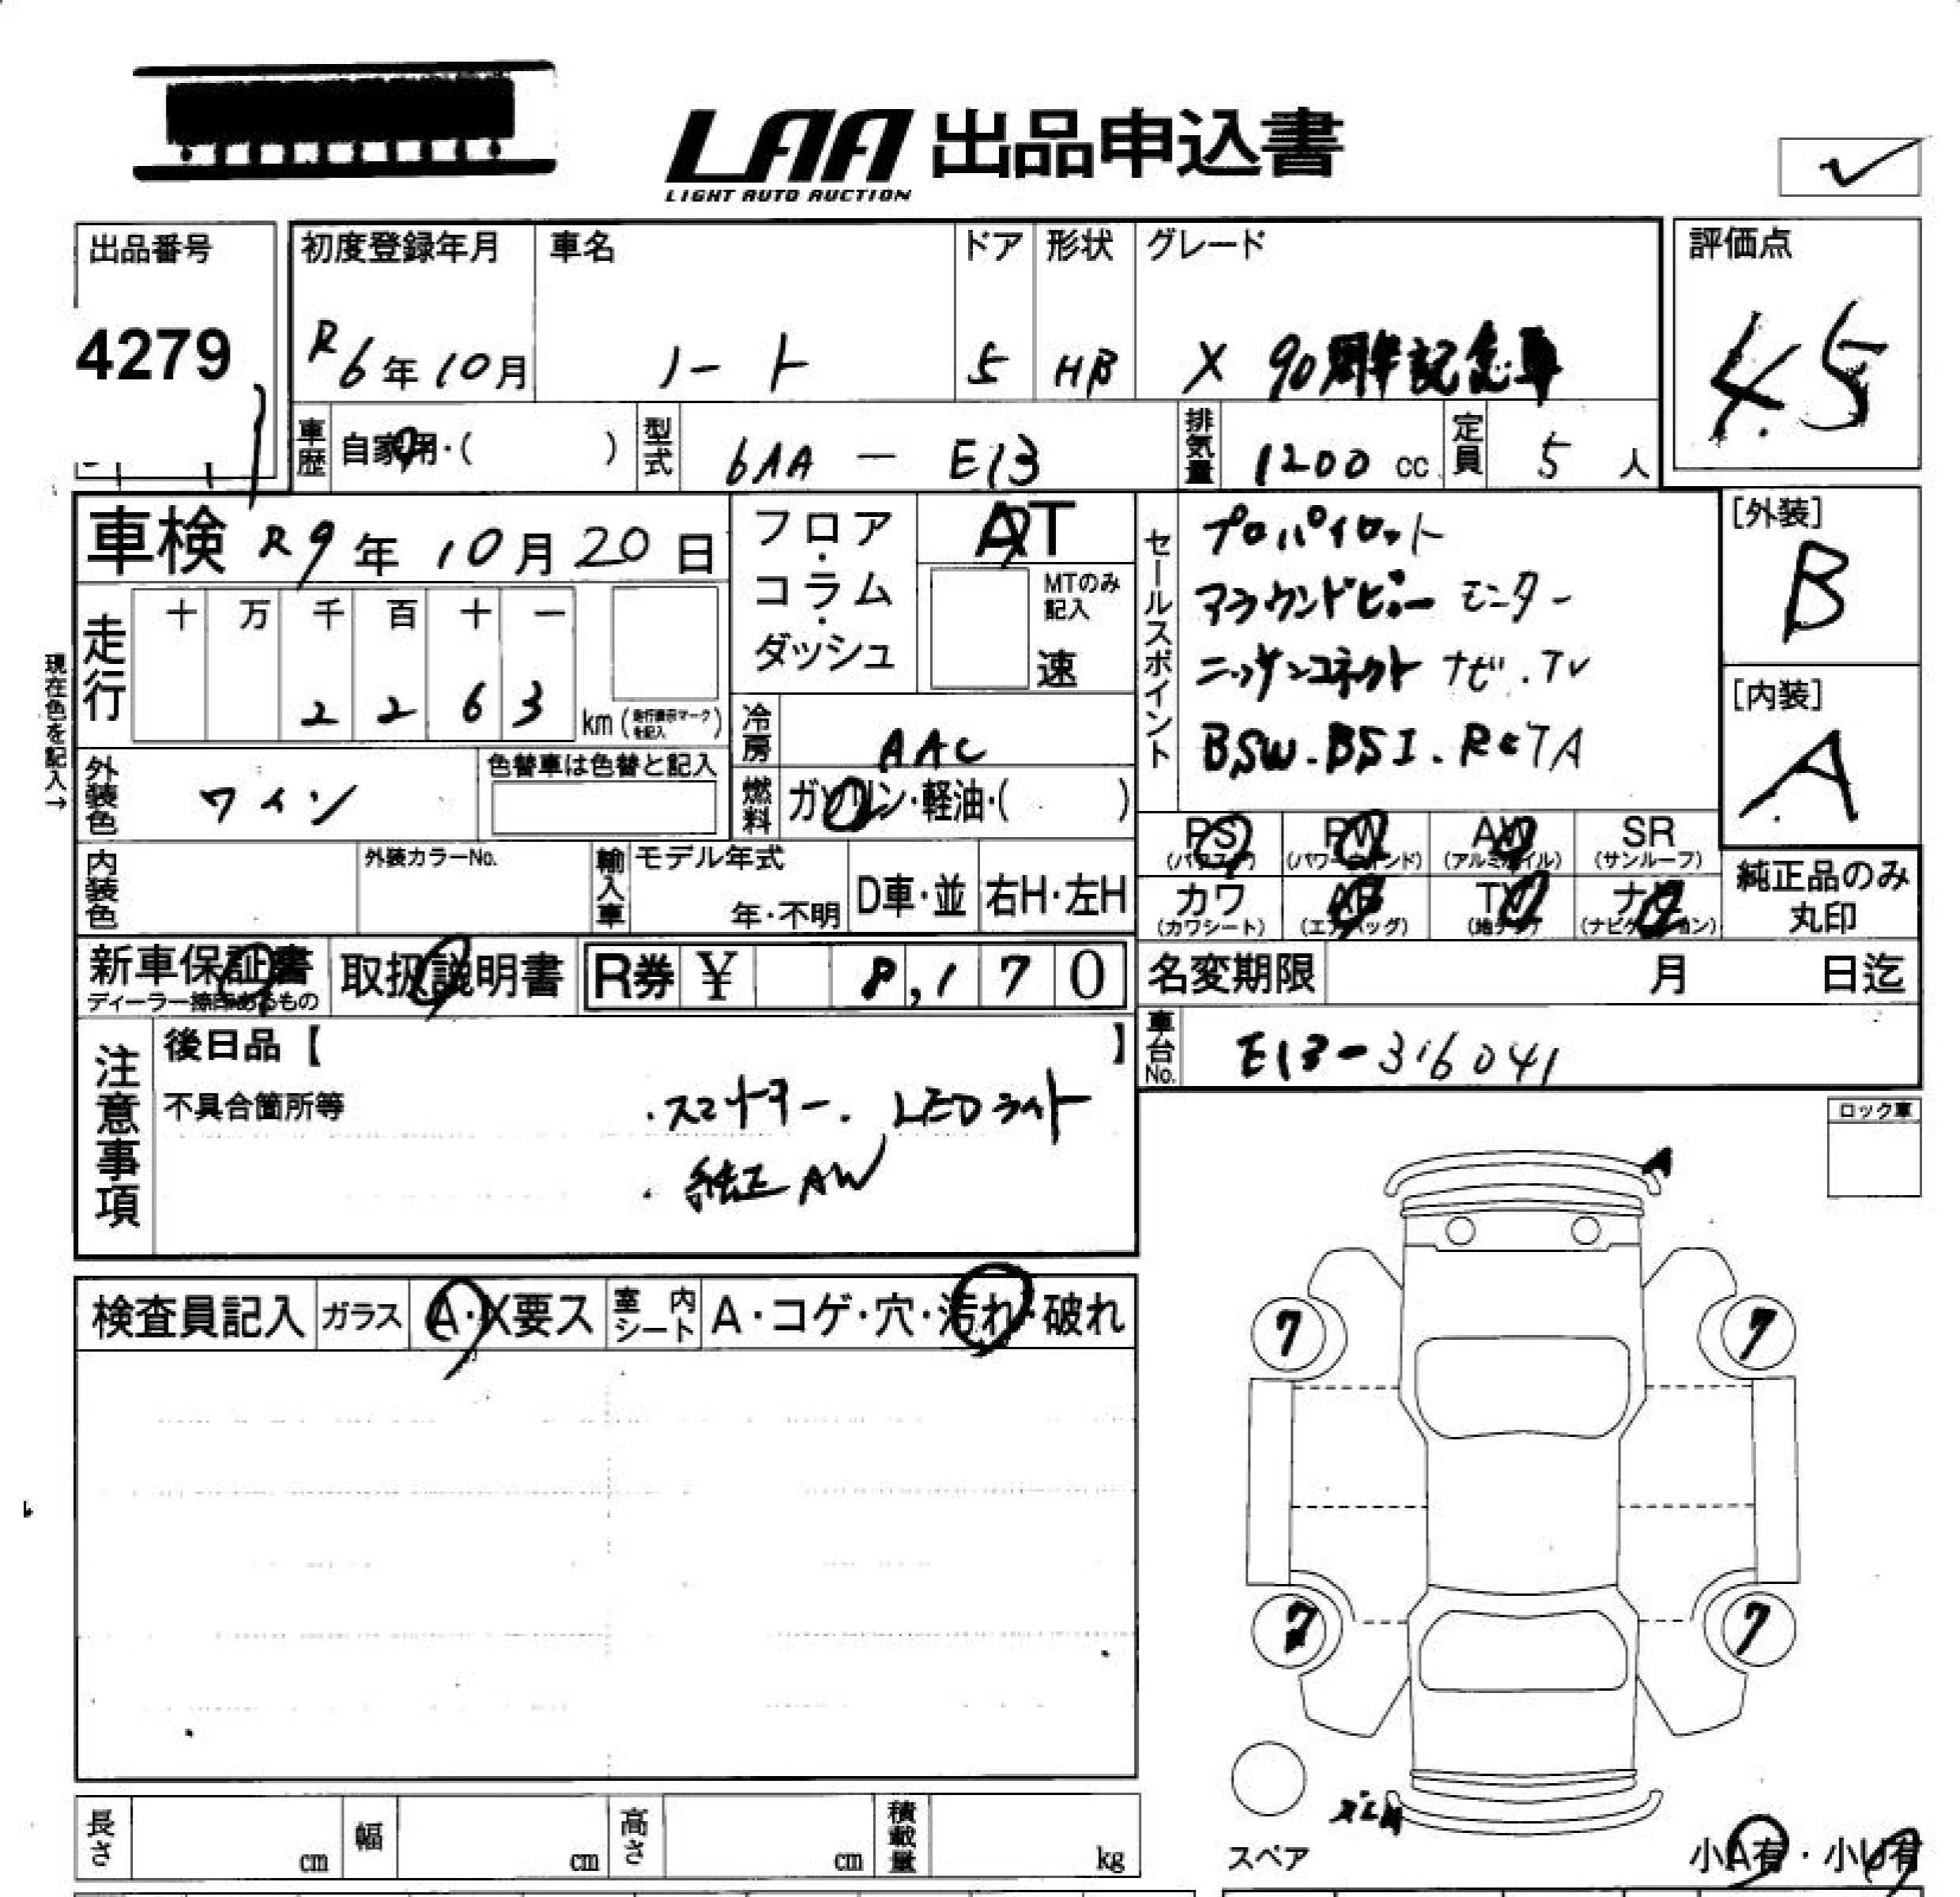 LAA 出品申込書
LIGHT AUTO AUCTION
出品番号
4279
初度登録年月
R6年10月
車名
ノート
ドア
5
形状
HB
グレード
X 90周年記念車
評価点
4.5
車歴
自家用・( )
型式
6AA - E13
排気量
1200 cc
定員
5 人
車検 R9年 10月 20日
フロア・コラム・ダッシュ
AT
MTのみ記入
速
セールスポイント
プロパイロット
アラウンドビューモニター
ニッサンコネクト ナビ.TV
BSW.BSI.RCTA
[外装]
B
[内装]
A
現在色を記入→
走行
十 万 千 百 十 一
2 2 6 3
km(走行表示マークを記入)
冷房
AAC
外装色
ワイン
色替車は色替と記入
燃料
ガソリン・軽油・( )
PS
(パワステ)
PW
(パワーウインド)
AW
(アルミホイル)
SR
(サンルーフ)
内装色
外装カラーNo.
輸入車
モデル年式
年・不明
D車・並
右H・左H
カワ
(カワシート)
AB
(エアバッグ)
TV
(地デジ)
ナビ
(ナビゲーション)
純正品のみ
丸印
新車保証書
ディーラー捺印あるもの
取扱説明書
R券 ¥ 8,170
名変期限 月 日迄
車台No.
E13-316041
注意事項
後日品【 】
不具合箇所等
・スマートキー. LEDライト
・純正AW
ロック車
A
検査員記入
ガラス
A・X要ス
室内シート
A・コゲ・穴・汚れ・破れ
7 7
7 7
スペア
小A有・小U有
長さ
cm
幅
cm
高さ
cm
積載量
kg